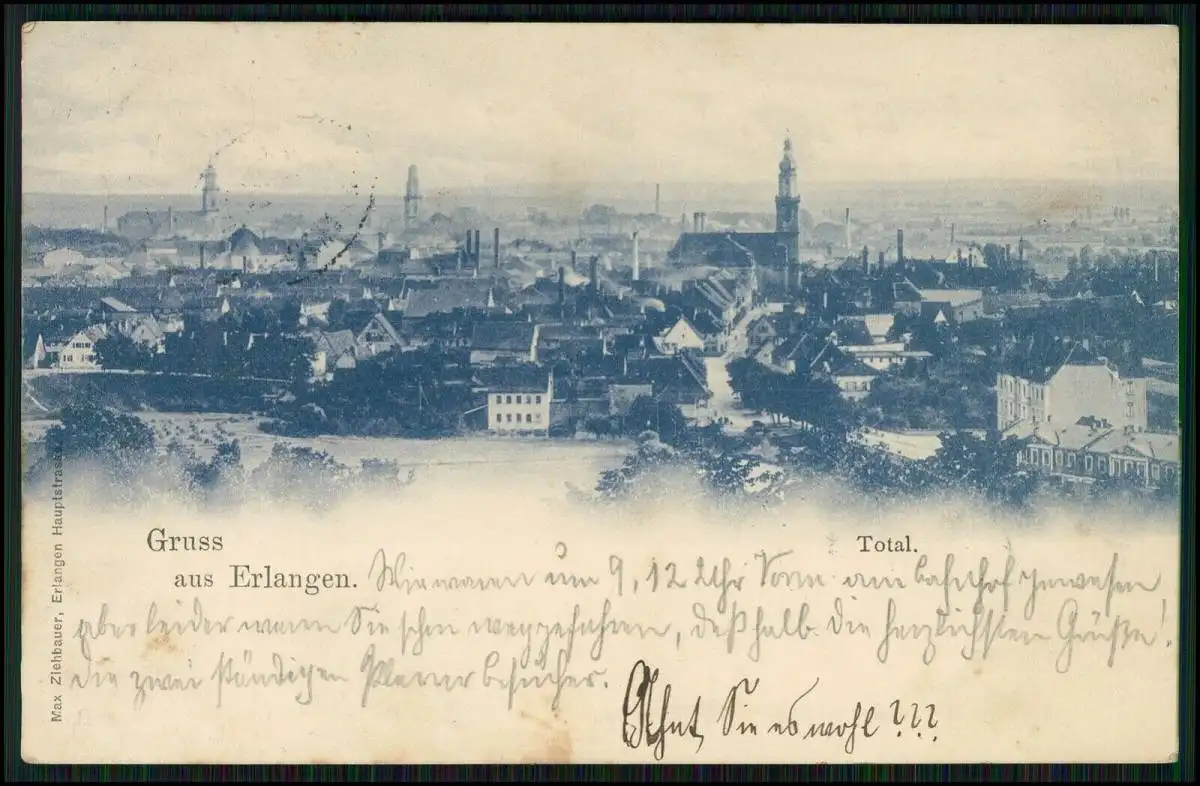 Gruss
aus Erlangen.
Total.
Wir waren um 9,12 Uhr Vorm. am Bahnhof gewesen
aber leider waren Sie schon weggefahren, deßhalb die herzlichsten Grüße!
die zwei ständigen besucher.
Ahnt Sie es wohl ???
Max Ziehbauer, Erlangen Hauptstrasse